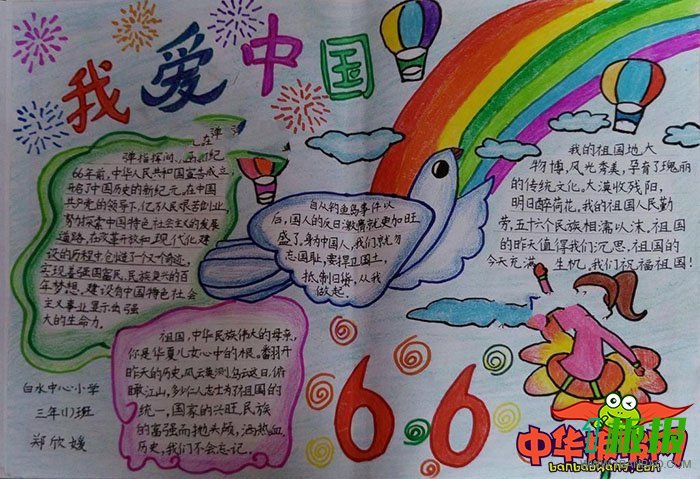 我爱中国
在弹
弹指挥间
66年前,中华人民共和国宣告成立,
开启了中国历史的新纪元,在中国
共产党的领导下,亿万人民艰苦创业,
努力探索中国特色社会主义的发展
道路,在改革开放和现代化建
设的历程中创造了一个又一个奇迹,
实现着强国富民,民族复兴的百
年梦想,建设有中国特色社会
主义事业显示出强
大的生命力。
自从钓鱼岛事件以
后,国人的反日激情就更加旺
盛了,身为中国人,我们就勿
忘国耻,要捍卫国土,
抵制日货,从我
做起。
我的祖国地大
物博,风光秀美,孕育了瑰丽
的传统文化。大漠收残阳,
明日醉荷花,我的祖国人民勤
劳,五十六个民族相濡以沫,祖国
的昨天值得我们沉思,祖国的
今天充满生机,我们祝福祖国!
祖国,中华民族伟大的母亲,
你是华夏儿女心中的根。翻开
昨天的历史,风云莫测,乌云这日,俯
瞰江山,多少仁人志士为了祖国的
统一,国家的兴旺,民族
的富强而抛头颅,洒热血,
历史,我们不会忘记。
白水中心小学
三年(1)班
郑欣媛
66
中华板报网
banbaowang.com